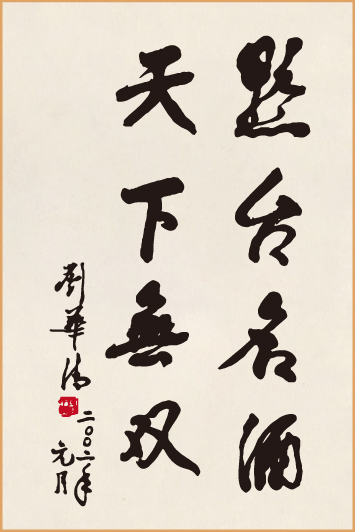 黔台名酒
天下無双
劉華清
二〇〇二年
元月